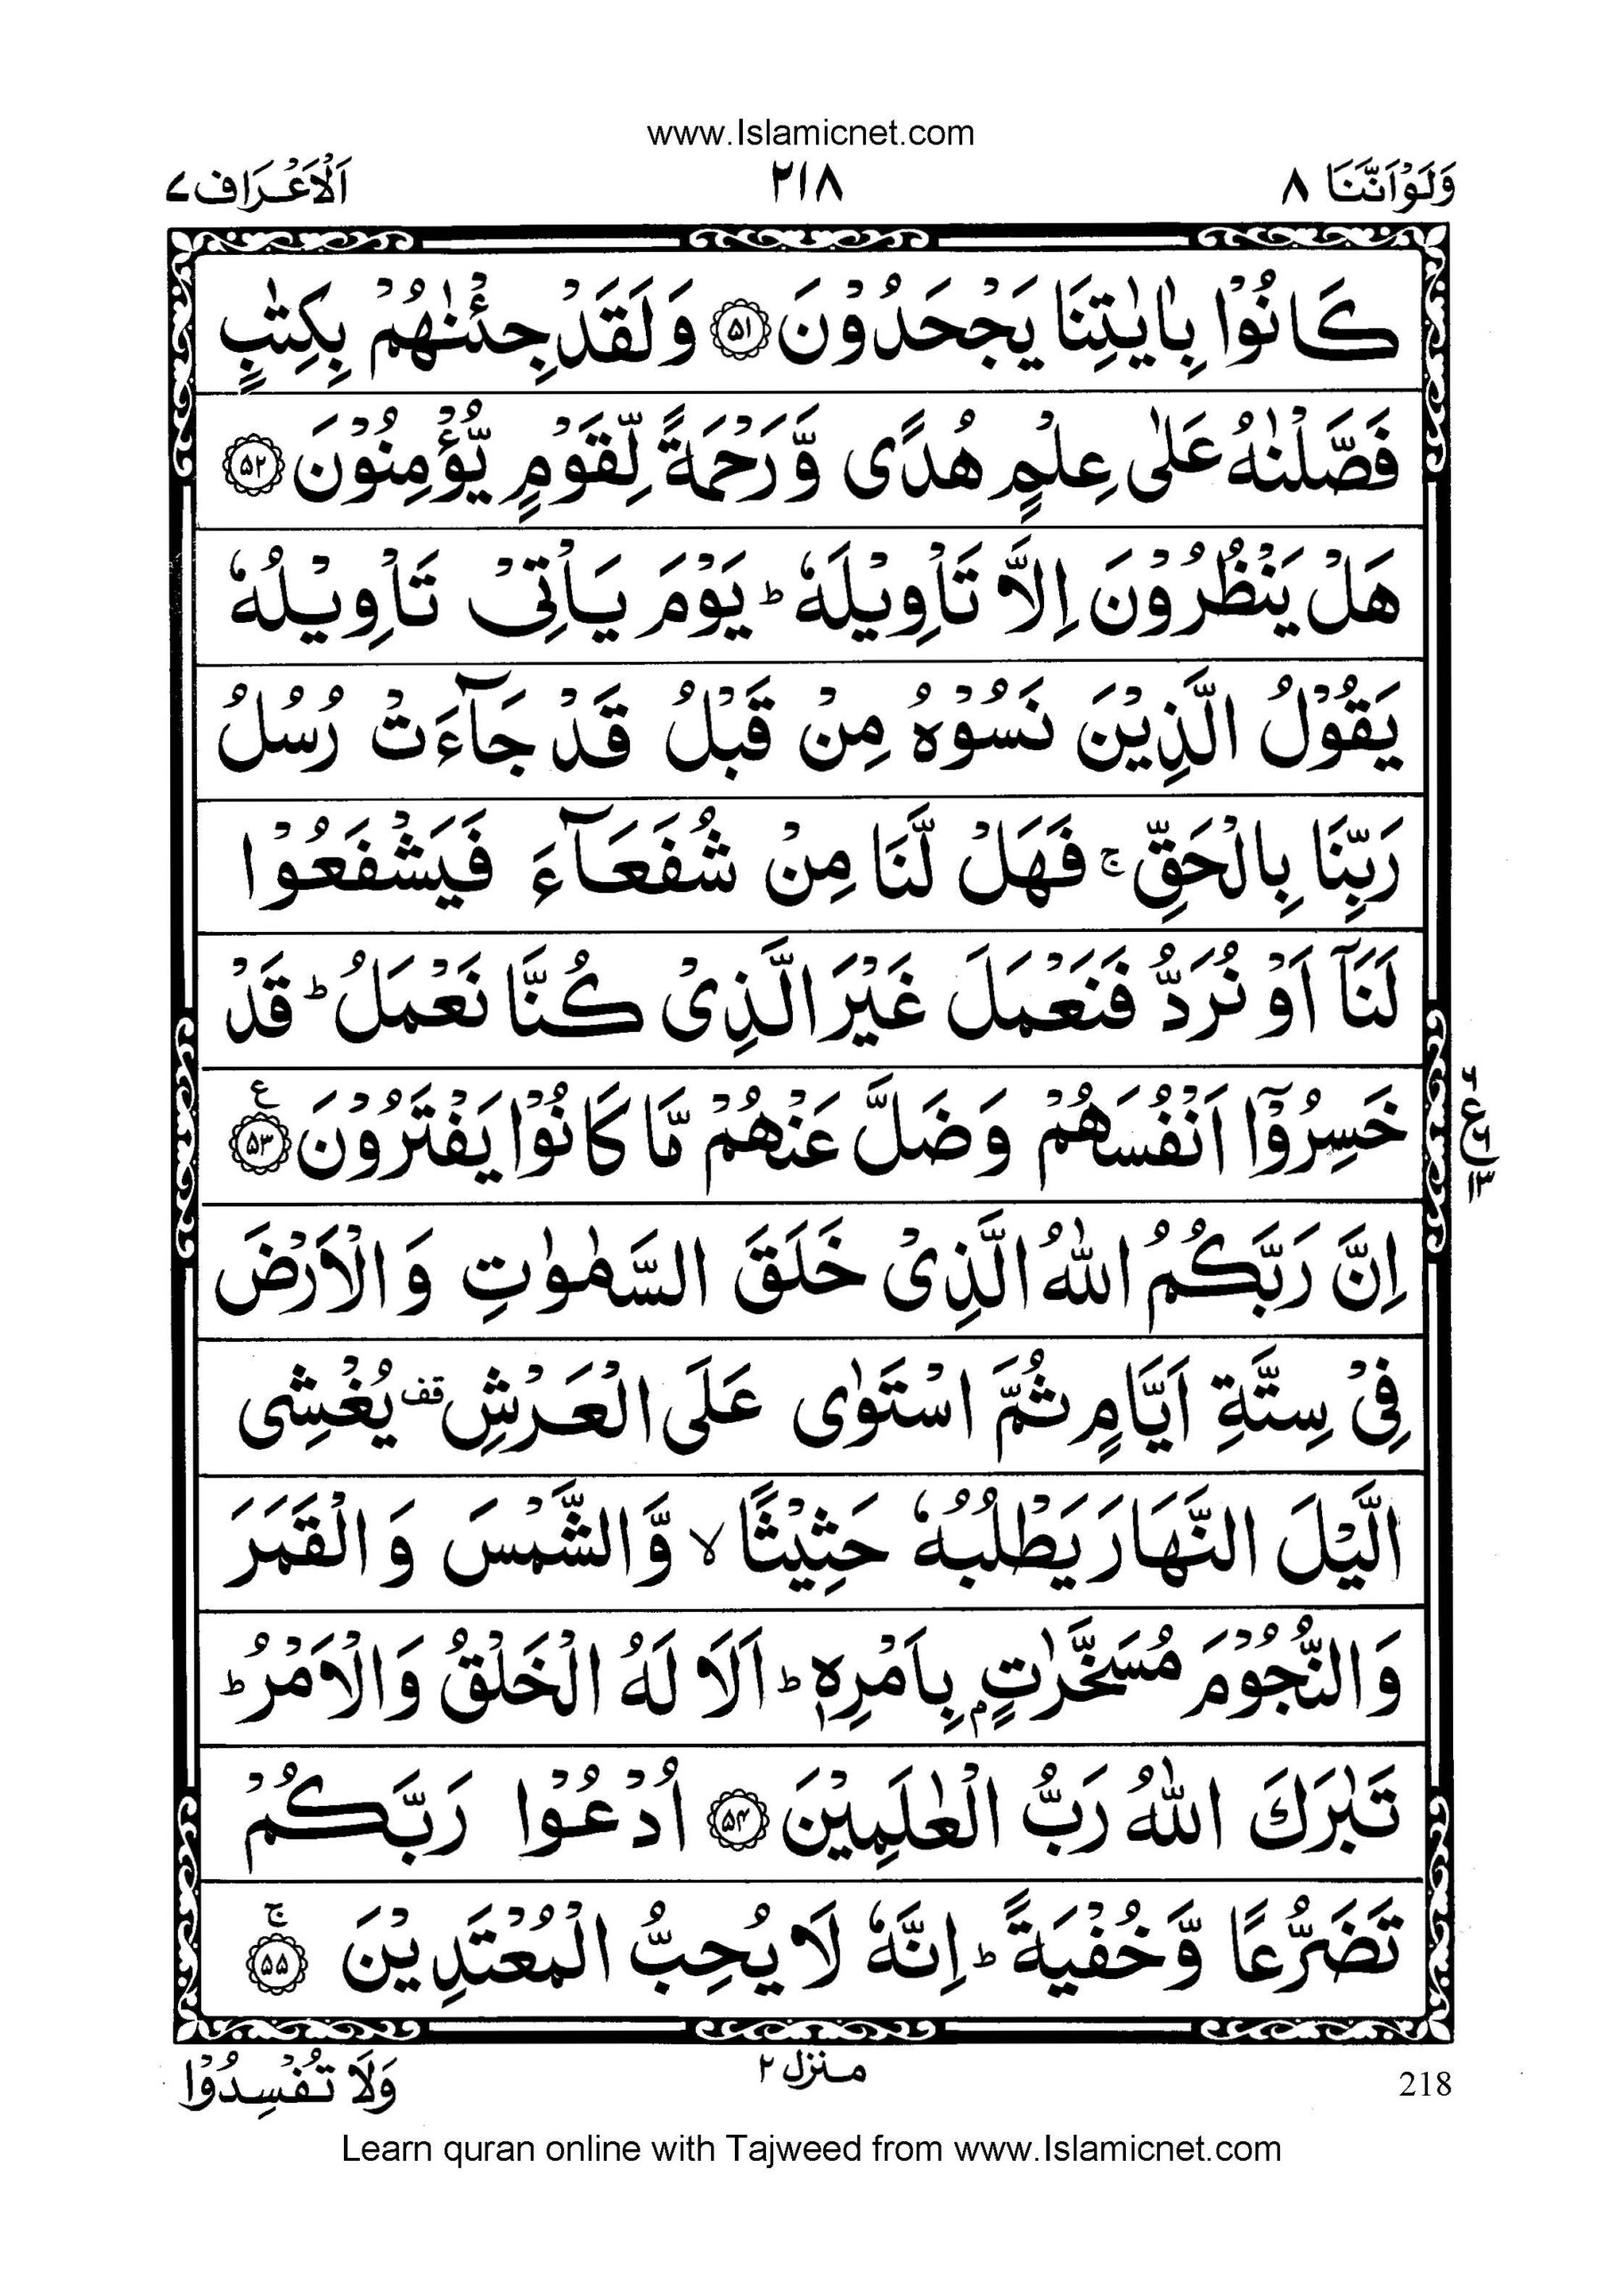 www.Islamicnet.com
وَلَوْ اَنَّنَا ۸
۲۱۸
اَلْاَعْرَاف ۷
كَانُوْا بِاٰيٰتِنَا يَجْحَدُوْنَ ۵۱ وَلَقَدْ جِئْنٰهُمْ بِكِتٰبٍ
فَصَّلْنٰهُ عَلٰى عِلْمٍ هُدًى وَّرَحْمَةً لِّقَوْمٍ يُّؤْمِنُوْنَ ۵۲
هَلْ يَنْظُرُوْنَ اِلَّا تَاْوِيْلَهٗ ؕ يَوْمَ يَاْتِيْ تَاْوِيْلُهٗ
يَقُوْلُ الَّذِيْنَ نَسُوْهُ مِنْ قَبْلُ قَدْ جَآءَتْ رُسُلُ
رَبِّنَا بِالْحَقِّ ۚ فَهَلْ لَّنَا مِنْ شُفَعَآءَ فَيَشْفَعُوْا
لَنَاۤ اَوْ نُرَدُّ فَنَعْمَلَ غَيْرَ الَّذِيْ كُنَّا نَعْمَلُ ؕ قَدْ
خَسِرُوْۤا اَنْفُسَهُمْ وَضَلَّ عَنْهُمْ مَّا كَانُوْا يَفْتَرُوْنَ ۵۳ ع
ع ۶ ۱۳
اِنَّ رَبَّكُمُ اللّٰهُ الَّذِيْ خَلَقَ السَّمٰوٰتِ وَالْاَرْضَ
فِيْ سِتَّةِ اَيَّامٍ ثُمَّ اسْتَوٰى عَلَى الْعَرْشِ قف يُغْشِى
الَّيْلَ النَّهَارَ يَطْلُبُهٗ حَثِيْثًا ۙ وَّالشَّمْسَ وَالْقَمَرَ
وَالنُّجُوْمَ مُسَخَّرٰتٍۭ بِاَمْرِهٖ ؕ اَلَا لَهُ الْخَلْقُ وَالْاَمْرُ ؕ
تَبٰرَكَ اللّٰهُ رَبُّ الْعٰلَمِيْنَ ۵۴ اُدْعُوْا رَبَّكُمْ
تَضَرُّعًا وَّخُفْيَةً ؕ اِنَّهٗ لَا يُحِبُّ الْمُعْتَدِيْنَ ۵۵ ۚ
218
منزل ۲
وَلَا تُفْسِدُوْا
Learn quran online with Tajweed from www.Islamicnet.com